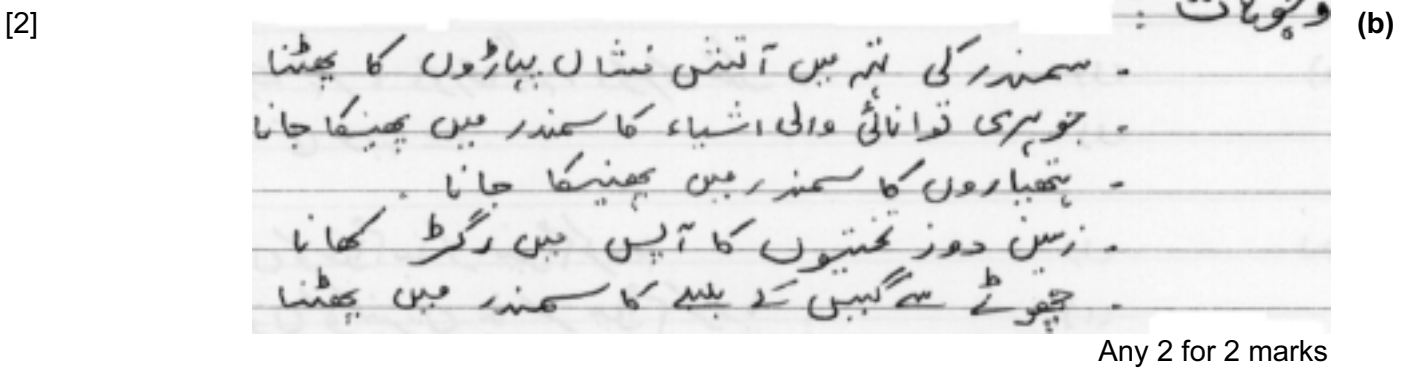 [2] (b)
وجوہات :
- سمندر کی تہہ میں آتش فشاں پہاڑوں کا پھٹنا
- جوہری توانائی والی اشیاء کا سمندر میں پھینکا جانا
- ہتھیاروں کا سمندر میں پھینکا جانا .
- زمین دوز تختیوں کا آپس میں رگڑ کھانا
- چھوٹے سے گیس کے بلبلے کا سمندر میں پھٹنا
Any 2 for 2 marks